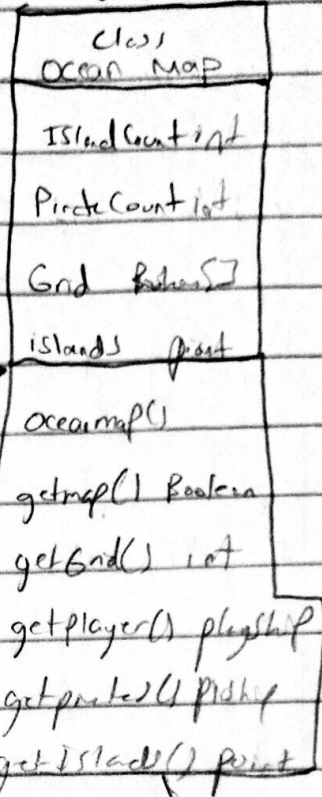 Class
Ocean Map
IslandCount int
PirateCount int
Grid Boolean[]
islands point
oceanmap()
getmap() Boolean
getGrid() int
getplayer() playship
getpirates() Pidship
getIslands() point